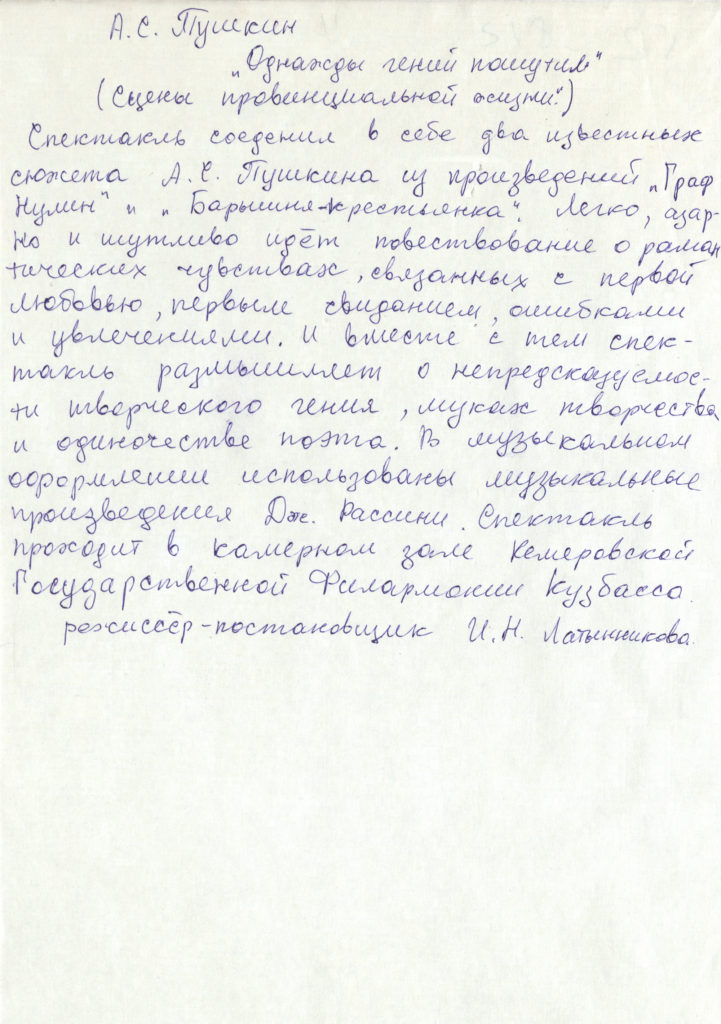 А.С. Пушкин
„Однажды гений пошутил"
(Сцены провинциальной жизни.)
Спектакль соеденил в себе два известных
сюжета А.С. Пушкина из произведений „Граф
Нулин" и „Барышня-крестьянка". Легко, азар-
но и шутливо идёт повествование о роман
тических чувствах, связанных с первой
любовью, первым свиданием, ошибками
и увлечениями. И вместе с тем спек-
такль размышляет о непредсказуемос-
ти творческого гения, муках творчества
и одиночестве поэта. В музыкальном
оформлении использованы музыкальные
произведения Дж. Рассини. Спектакль
проходит в камерном зале Кемеровской
Государственной Филармонии Кузбасса.
режиссёр-постановщик И.Н. Латынникова.